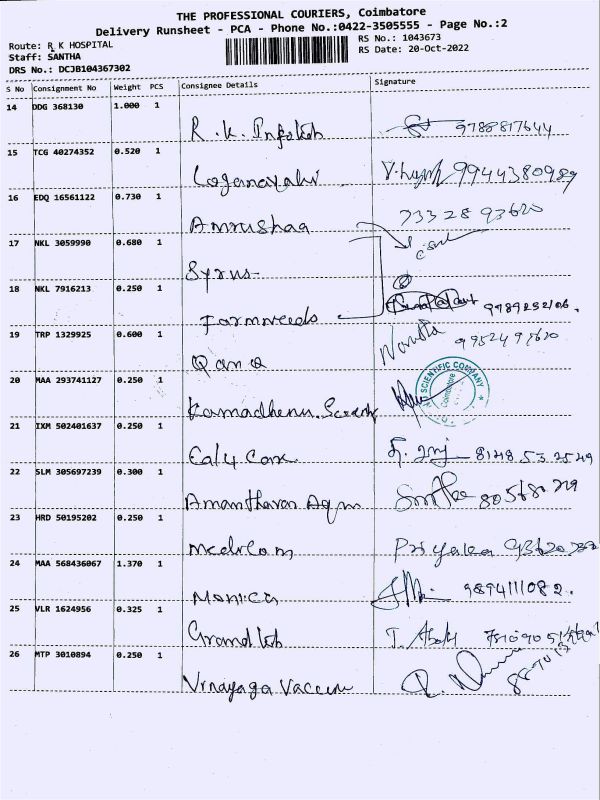 THE PROFESSIONAL COURIERS, Coimbatore
Delivery Runsheet - PCA - Phone No.:0422-3505555 - Page No.:2
Route: R K HOSPITAL
RS No.: 1043673
Staff: SANTHA
RS Date: 20-Oct-2022
DRS No.: DCJB104367302
S No Consignment No Weight PCS Consignee Details Signature
14 DDG 368130 1.000 1
R.K. Infotech 9788817644
15 TCG 40274352 0.520 1
Loganayaki 9944380989
16 EDQ 16561122 0.730 1
Amrushaa 73328 93620
17 NKL 3059990 0.680 1
Syrus
18 NKL 7916213 0.250 1
Farmneeds
19 TRP 1329925 0.600 1
20 MAA 293741127 0.250 1
Kamadhenu SCIENTIFIC COMPANY Coimbatore
21 IXM 502401637 0.250 1
Caly Care 8148532549
22 SLM 305697239 0.300 1
23 HRD 50195202 0.250 1
medicom
24 MAA 568436067 1.370 1
Monica 9894111082.
25 VLR 1624956 0.325 1
26 MTP 3010894 0.250 1
Vinayaga Vaccine